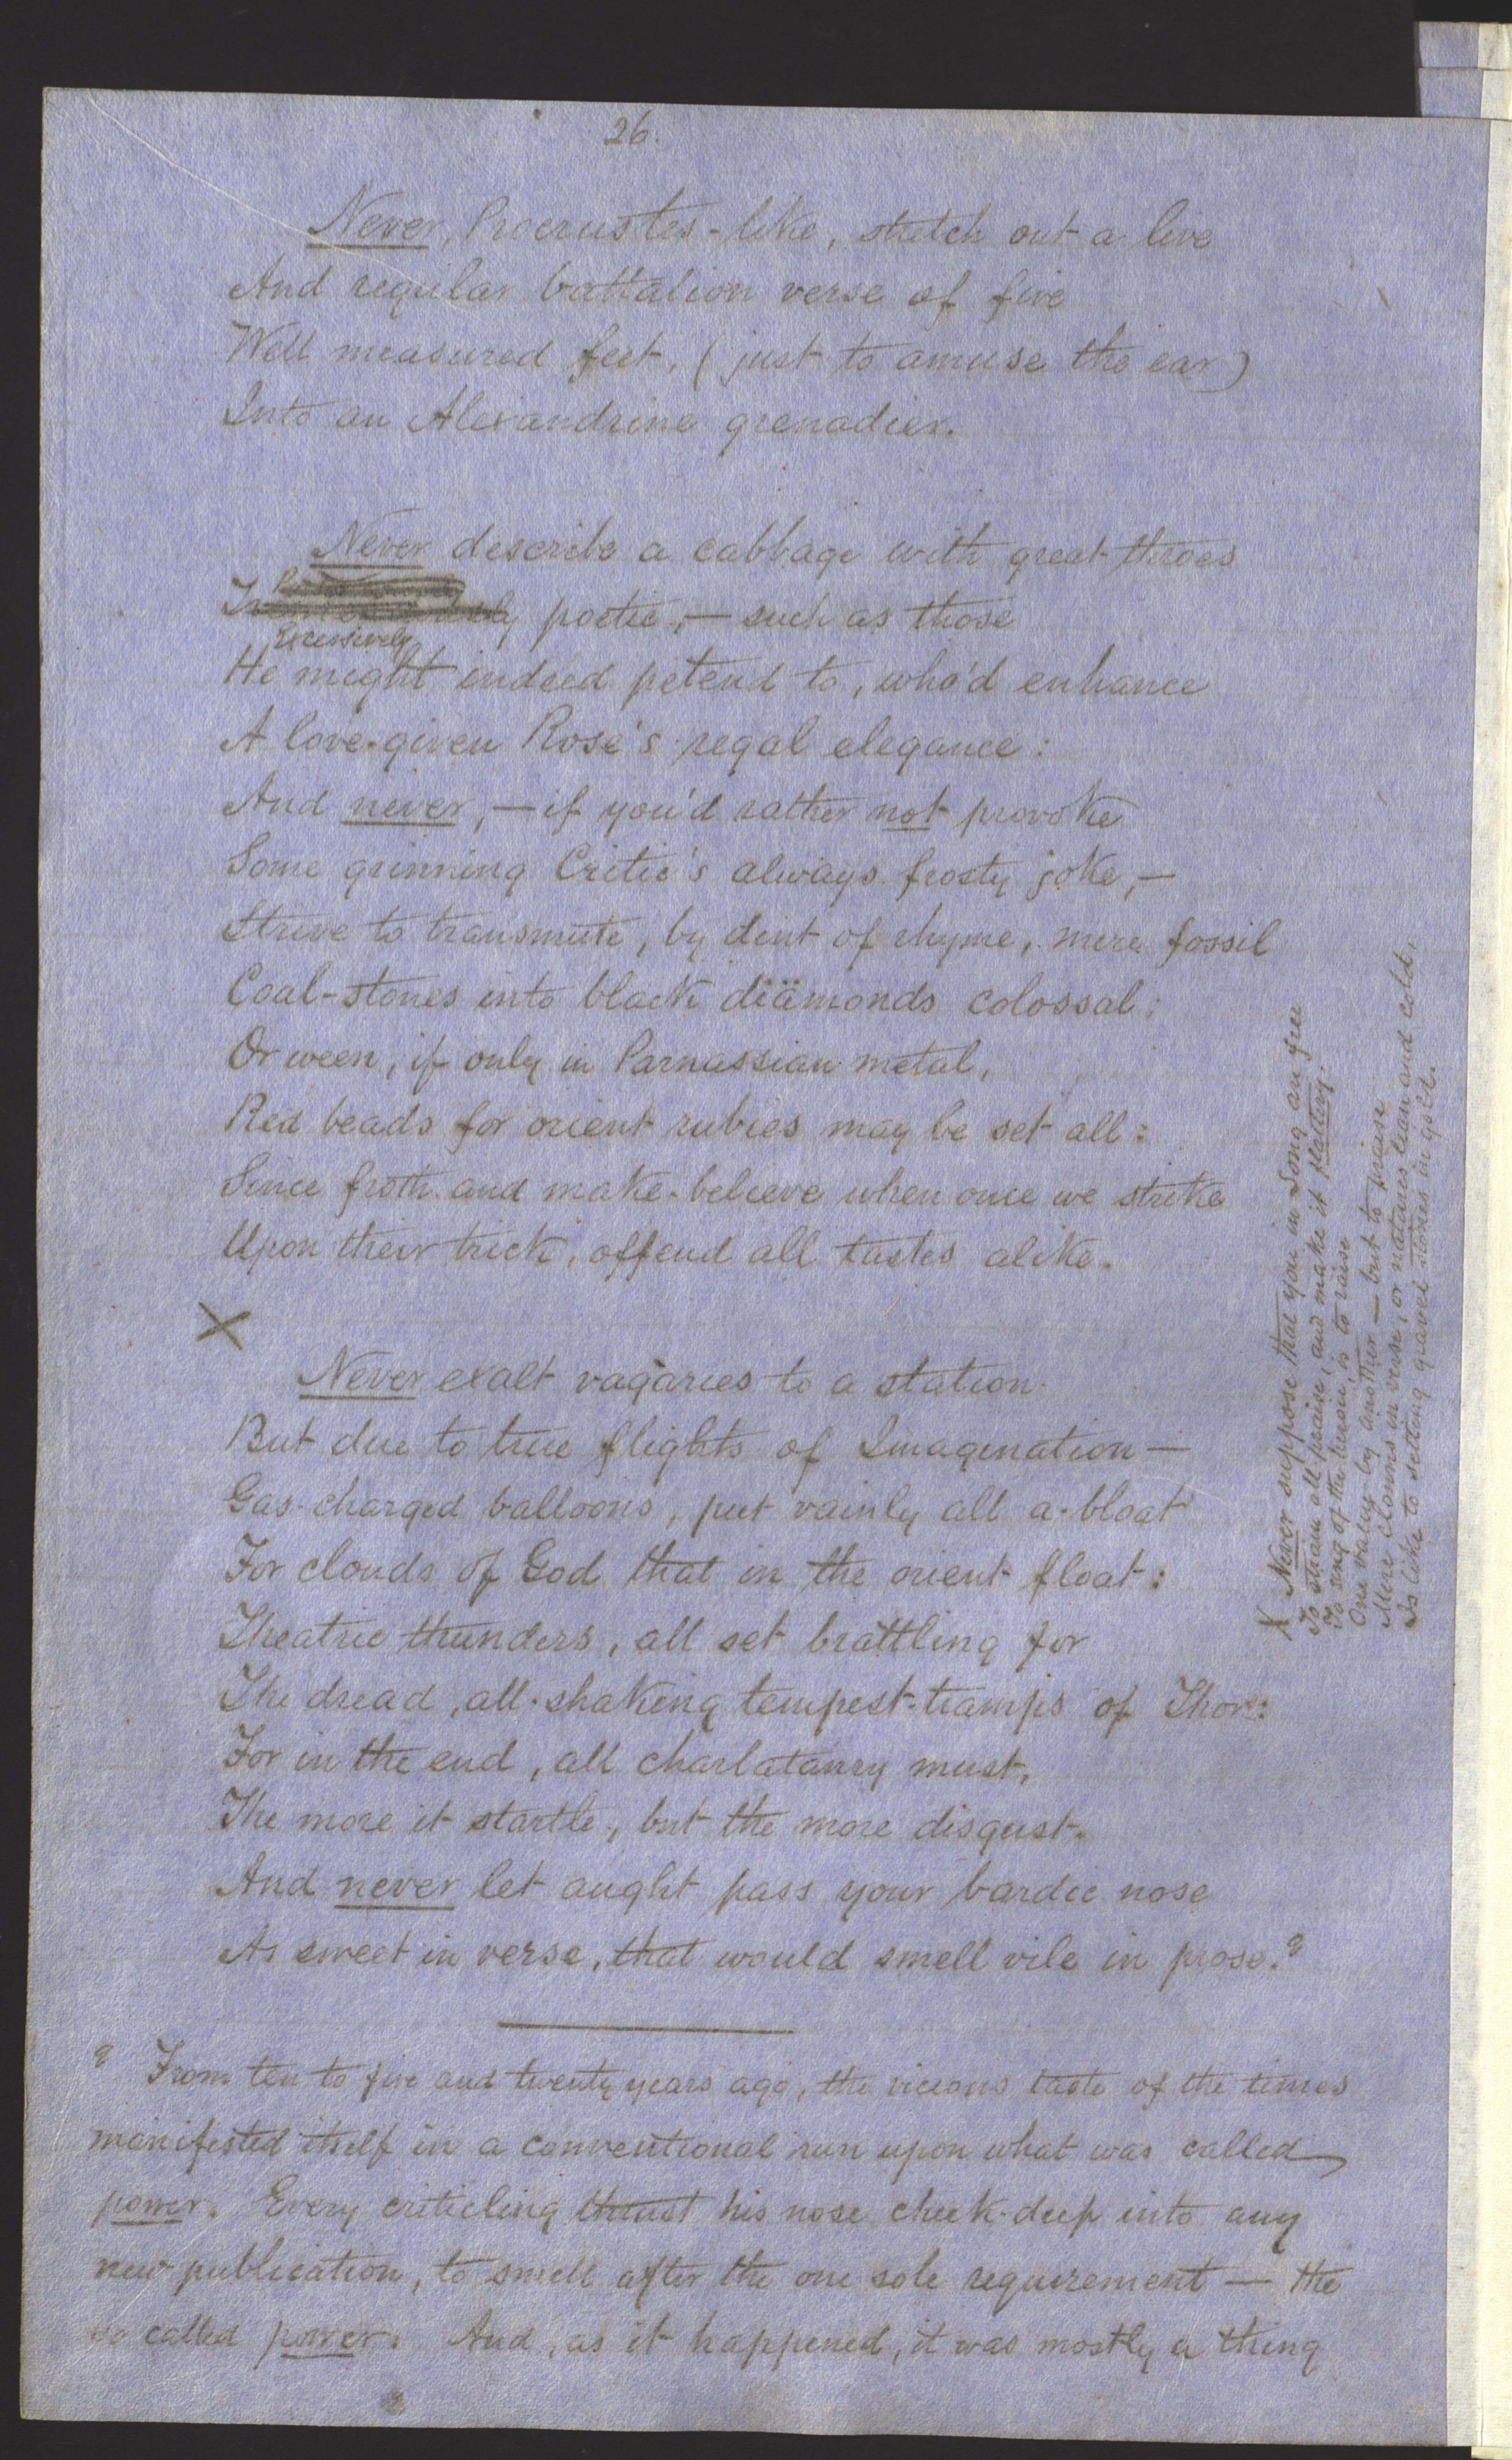 26.
Never, Procrustes-like, stretch out a live
And regular battalion verse of five
Well measured feet, (just to amuse the ear)
Into an Alexandrine grenadier.
Never describe a cabbage with great throes
poetic, — such as those
Excessively
He might indeed petend to, who'd enhance
A love-given Rose's regal elegance:
And never, — if you'd rather not provoke
Some grinning Critic's always frosty joke, —
Strive to transmute, by dint of rhyme, mere fossil
Coal-stones into black dïämonds colossal;
Or ween, if only in Parnassian metal,
Red beads for orient rubies may be set all:
Since froth and make-believe when once we strike
Upon their trick, offend all tastes alike.
X
Never exalt vagaries to a station
But due to true flights of Imagination —
Gas-charged balloons, put vainly all a-bloat
For clouds of God that in the orient float:
Theatric thunders, all set brattling for
The dread, all-shaking tempest-tramps of Thor:
For in the end, all charlatanry must,
The more it startle, but the more disgust.
And never let aught pass your bardic nose
As sweet in verse, that would smell vile in prose.
From ten to five and twenty years ago, the vicious taste of the times
manifested itself in a conventional run upon what was called
power. Every criticling thrust his nose cheek-deep into any
new publication, to smell after the one sole requirement — the
so called power. And, as it happened, it was mostly a thing
X Never suppose that you in Song are free
To strain all praise, and make it flattery.
To sing of the human, is to raise
One valley by another — but to praise
Mere clowns in verse, or natures lean and cold,
Is like to setting gravel stones in gold.